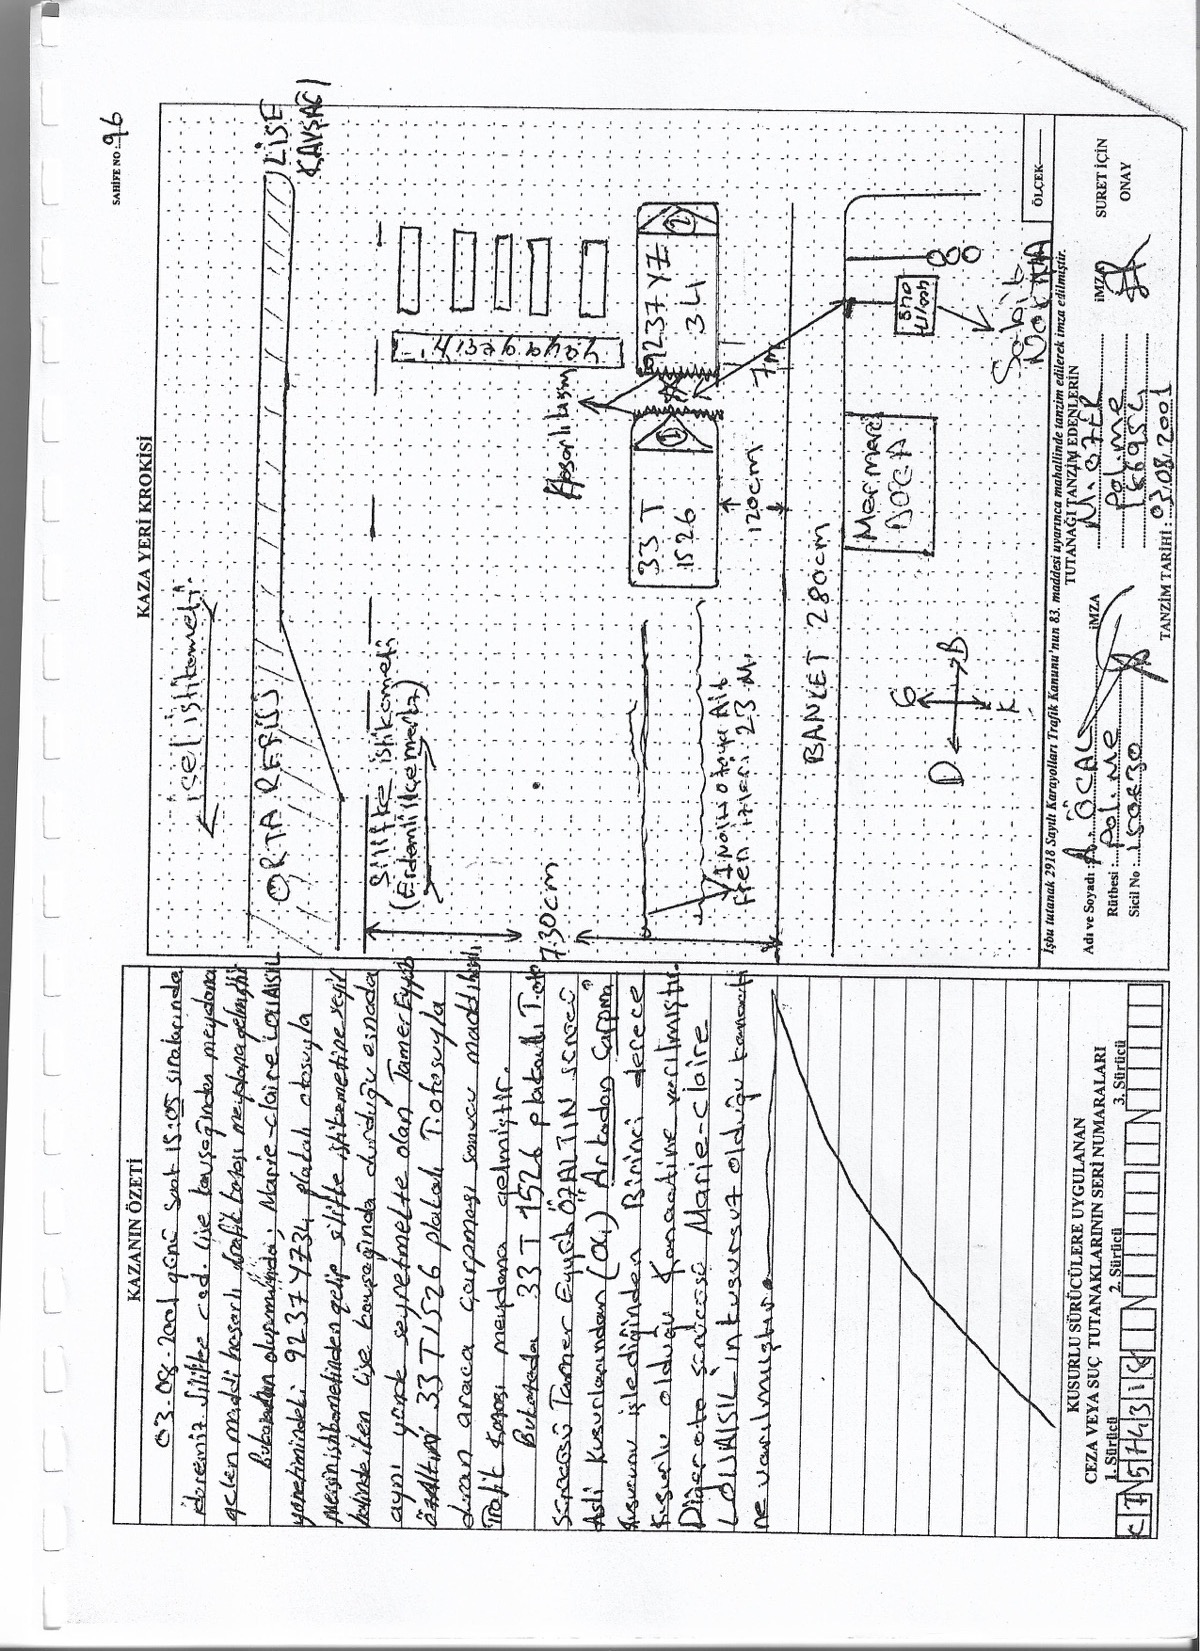 SAHİFE NO : 96
KAZANIN ÖZETİ
03-08-2001 günü saat 15:05 sıralarında
ilçemiz Silifke cad. Lise kavşağında meydana
gelen maddi hasarlı trafik kazası meydana gelmiştir
olup Marie-claire LOUAISIL
yönetimindeki 9237 YZ 34 plakalı otosuyla
mersin istikametinden gelip silifke istikametine seyir
halinde iken Lise kavşağında durduğu esnada
aynı yönde seyretmekte olan Tamer Eyyüb
özaltın 33 T 1526 plakalı T.otosuyla
duran araca çarpması sonucu maddi
Trafik kazası meydana gelmiştir.
Bu kazada 33 T 1526 plakalı T.oto
sürücüsü Tamer Eyyüb ÖZALTIN sürücü
Asli Kusurlarından Arkadan Çarpma"
kusurunu işlediğinden Birinci derece
Kusurlu olduğu Kanaatine verilmiştir.
Diğer oto sürücüsü Marie-claire
LOUAISIL in kusursuz olduğu kanaati
ne varılmıştır.
KUSURLU SÜRÜCÜLERE UYGULANAN
CEZA VEYA SUÇ TUTANAKLARININ SERİ NUMARALARI
1. Sürücü 2. Sürücü 3. Sürücü
574318
KAZA YERİ KROKİSİ
içel istikameti
ORTA REFÜJ
LİSE
KAVŞAĞI
Silifke istikameti
(Erdemli ilçe merkz)
Yaya geçidi
Hasarlı kısım
9237 YZ
34
2
33 T
1526
1
7m
120cm
730cm
1 Nolu otoya Ait
fren izleri 23 M.
BANKET 280cm
Mermerci
DOCA
Sabit
Nokta
G
D
B
K
ÖLÇEK
İşbu tutanak 2918 Sayılı Karayolları Trafik Kanunu'nun 83. maddesi uyarınca mahallinde tanzim edilerek imza edilmiştir.
TUTANAĞI TANZİM EDENLERİN
SURET İÇİN
ONAY
Adı ve Soyadı : A. ÖCAL İMZA M. ÖZER İMZA
Rütbesi : Pol. Me Pol. Me
Sicil No : 150830
TANZİM TARİHİ : 03.08.2001